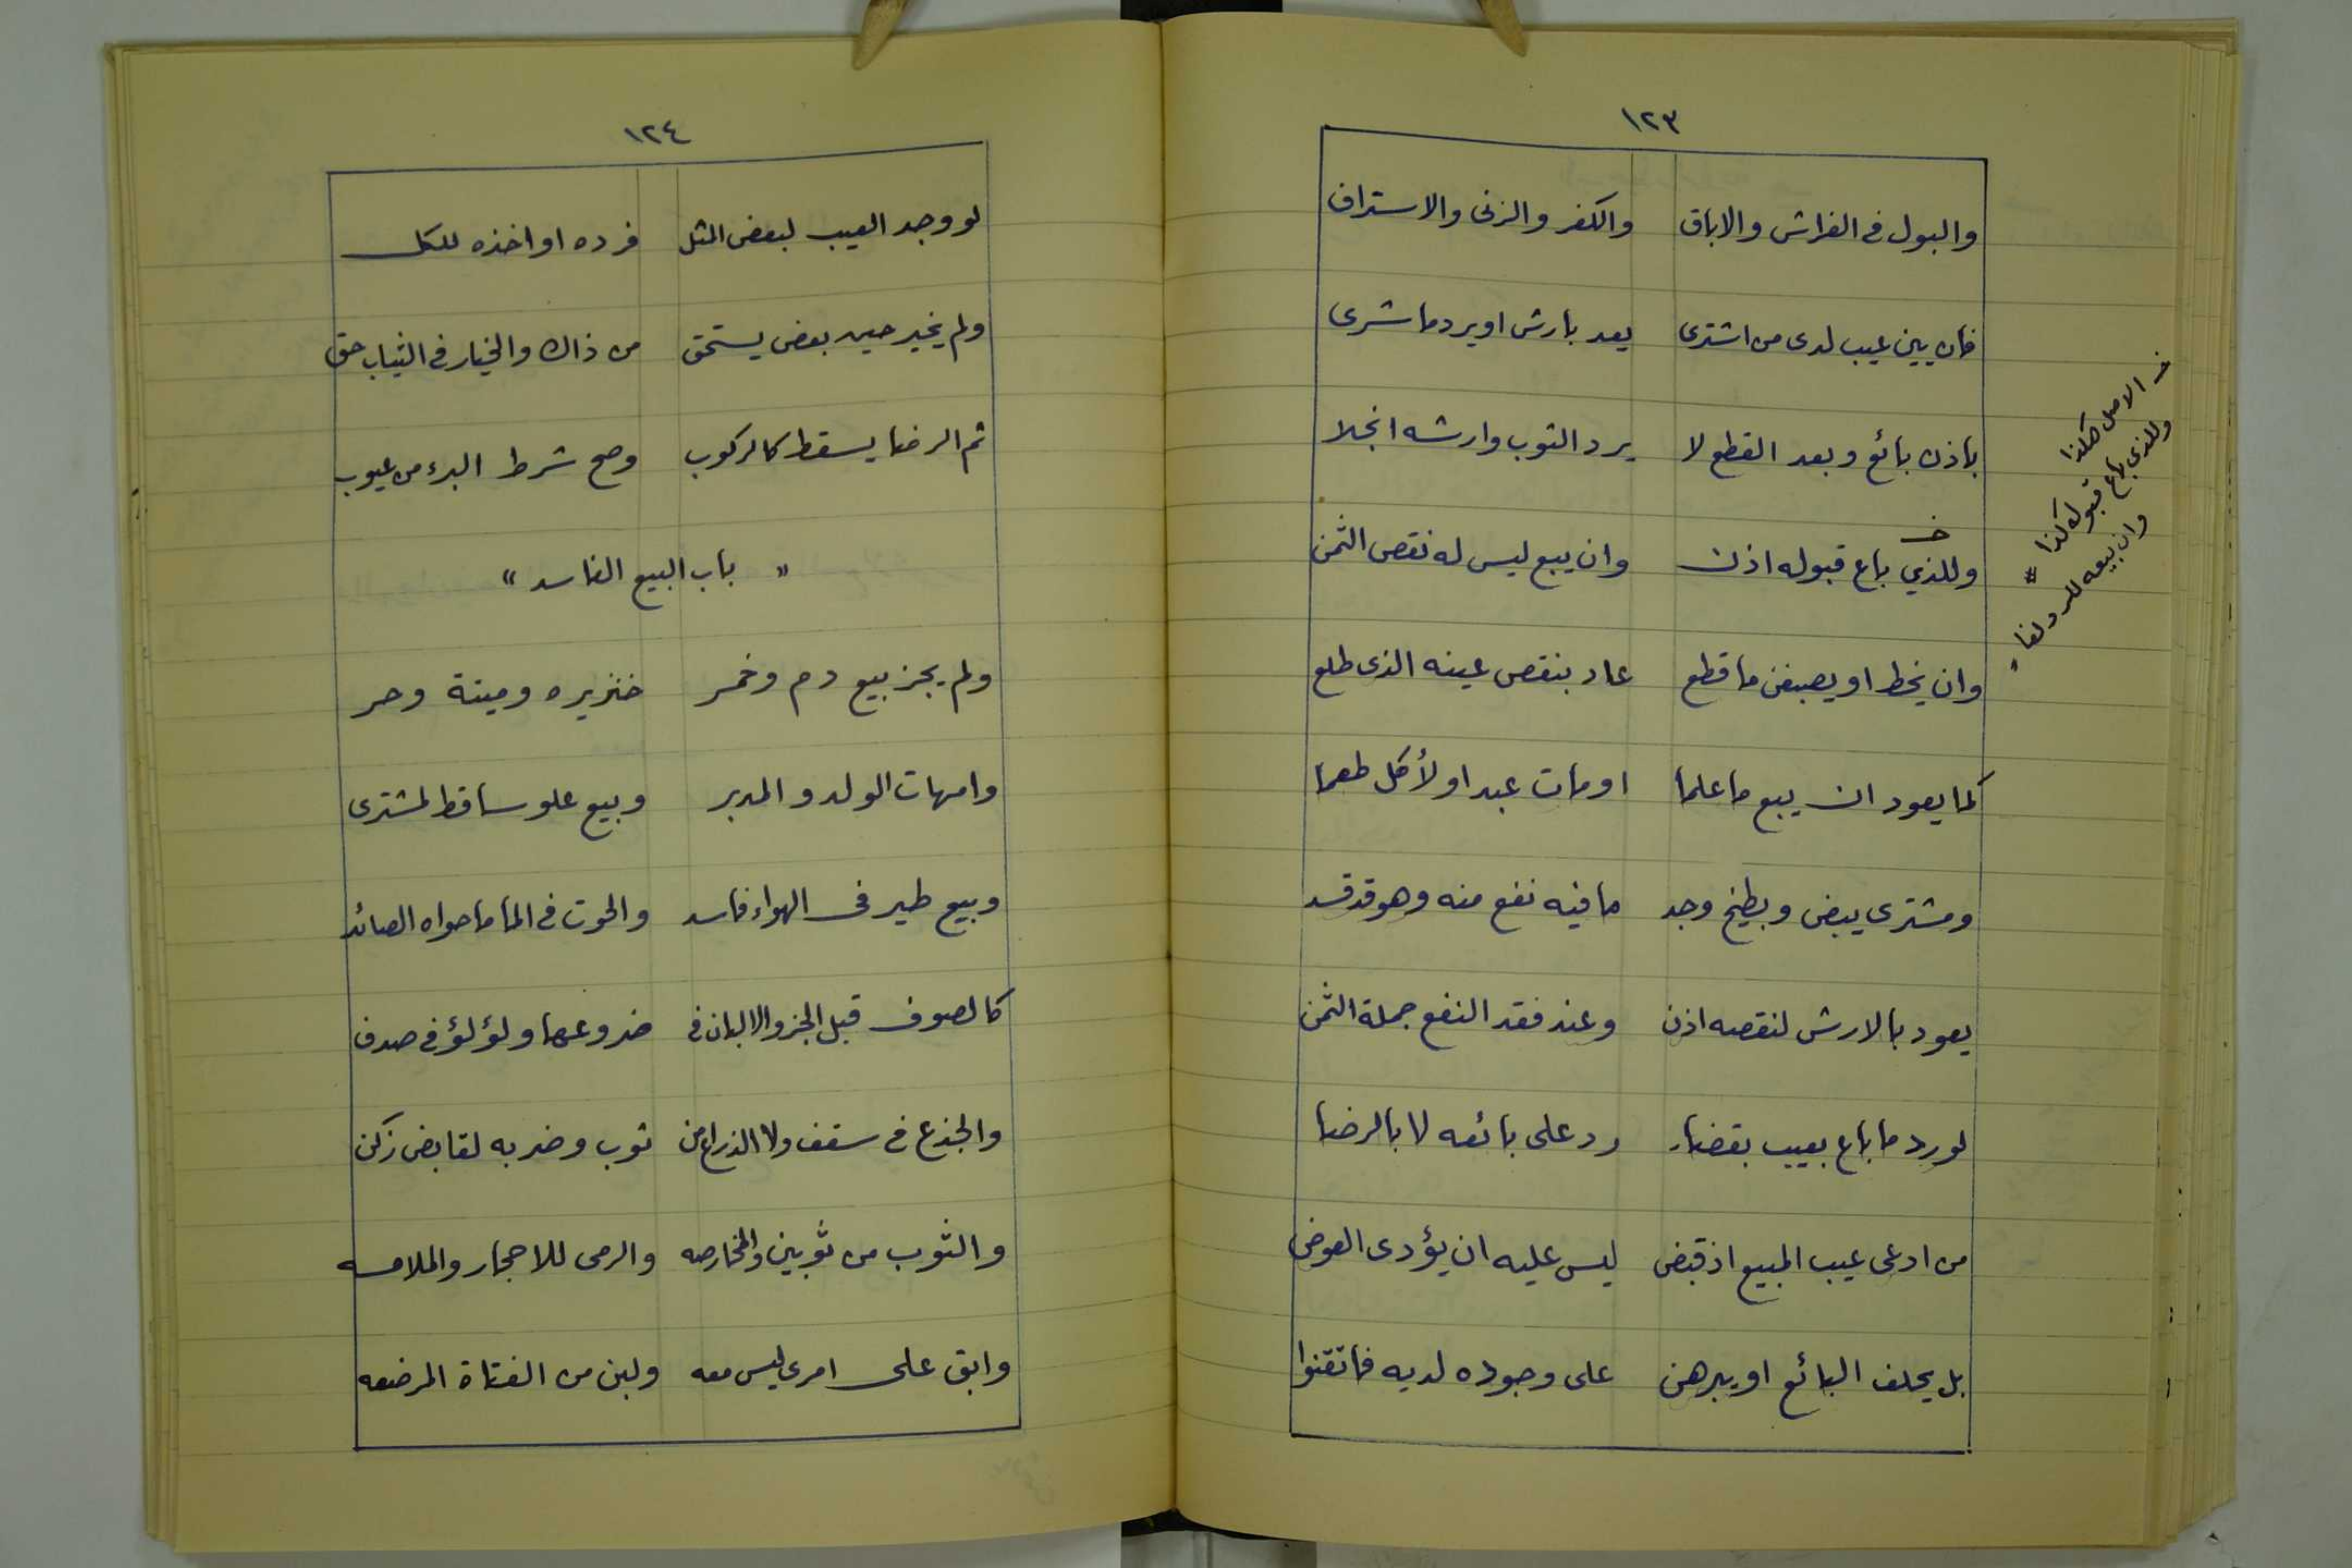 ١٢٣
والبول في الفراش والاباق والكفر والزنى والاستراق
فان يبن عيب لدى من اشترى يعد بارش او يرد ما شرى
باذن بائع وبعد القطع لا يرد الثوب وارشه انجلا
وللذي باع قبوله اذن وان يبع ليس له نقص الثمن
وان يخط او يصبغن ما قطع عاد بنقص عينه الذى طلع
كما يعود ان يبع ما علما او مات عبد او لأكل طعما
ومشترى بيض وبطيخ وجد ما فيه نفع منه وهو قد فسد
يعود بالارش لنقصه اذن وعند فقد النفع جملة الثمن
لو رد ما باع بعيب بقضاء رد على بائعه لا بالرضا
من ادعى عيب المبيع اذ قبض ليس عليه ان يؤدى العوض
بل يحلف البائع او يبرهن على وجوده لديه فاتقنوا
خـ الاصل هكذا
وللذي باع قبوله كذا #
وان بيعه للرد لغا "
١٢٤
لو وجد العيب لبعض المثل فرده او اخذه للكل
ولم يخير حين بعض يستحق من ذاك والخيار في الثياب حق
ثم الرضا يسقط كالركوب وصح شرط البرء من عيوب
" باب البيع الفاسد "
ولم يجز بيع دم وخمر خنزيره وميتة وحر
وامهات الولد والمدبر وبيع علو ساقط لمشترى
وبيع طير فى الهواء فاسد والحوت في الما ما حواه الصائد
كالصوف قبل الجز والالبان في ضروعها ولؤلؤ في صدف
والجذع في سقف ولا الذراع من ثوب وضربه لقابض زكن
والثوب من ثوبين والمخارصه والرمى للاحجار والملامسه
وابق على امرى ليس معه ولبن من الفتاة المرضعه